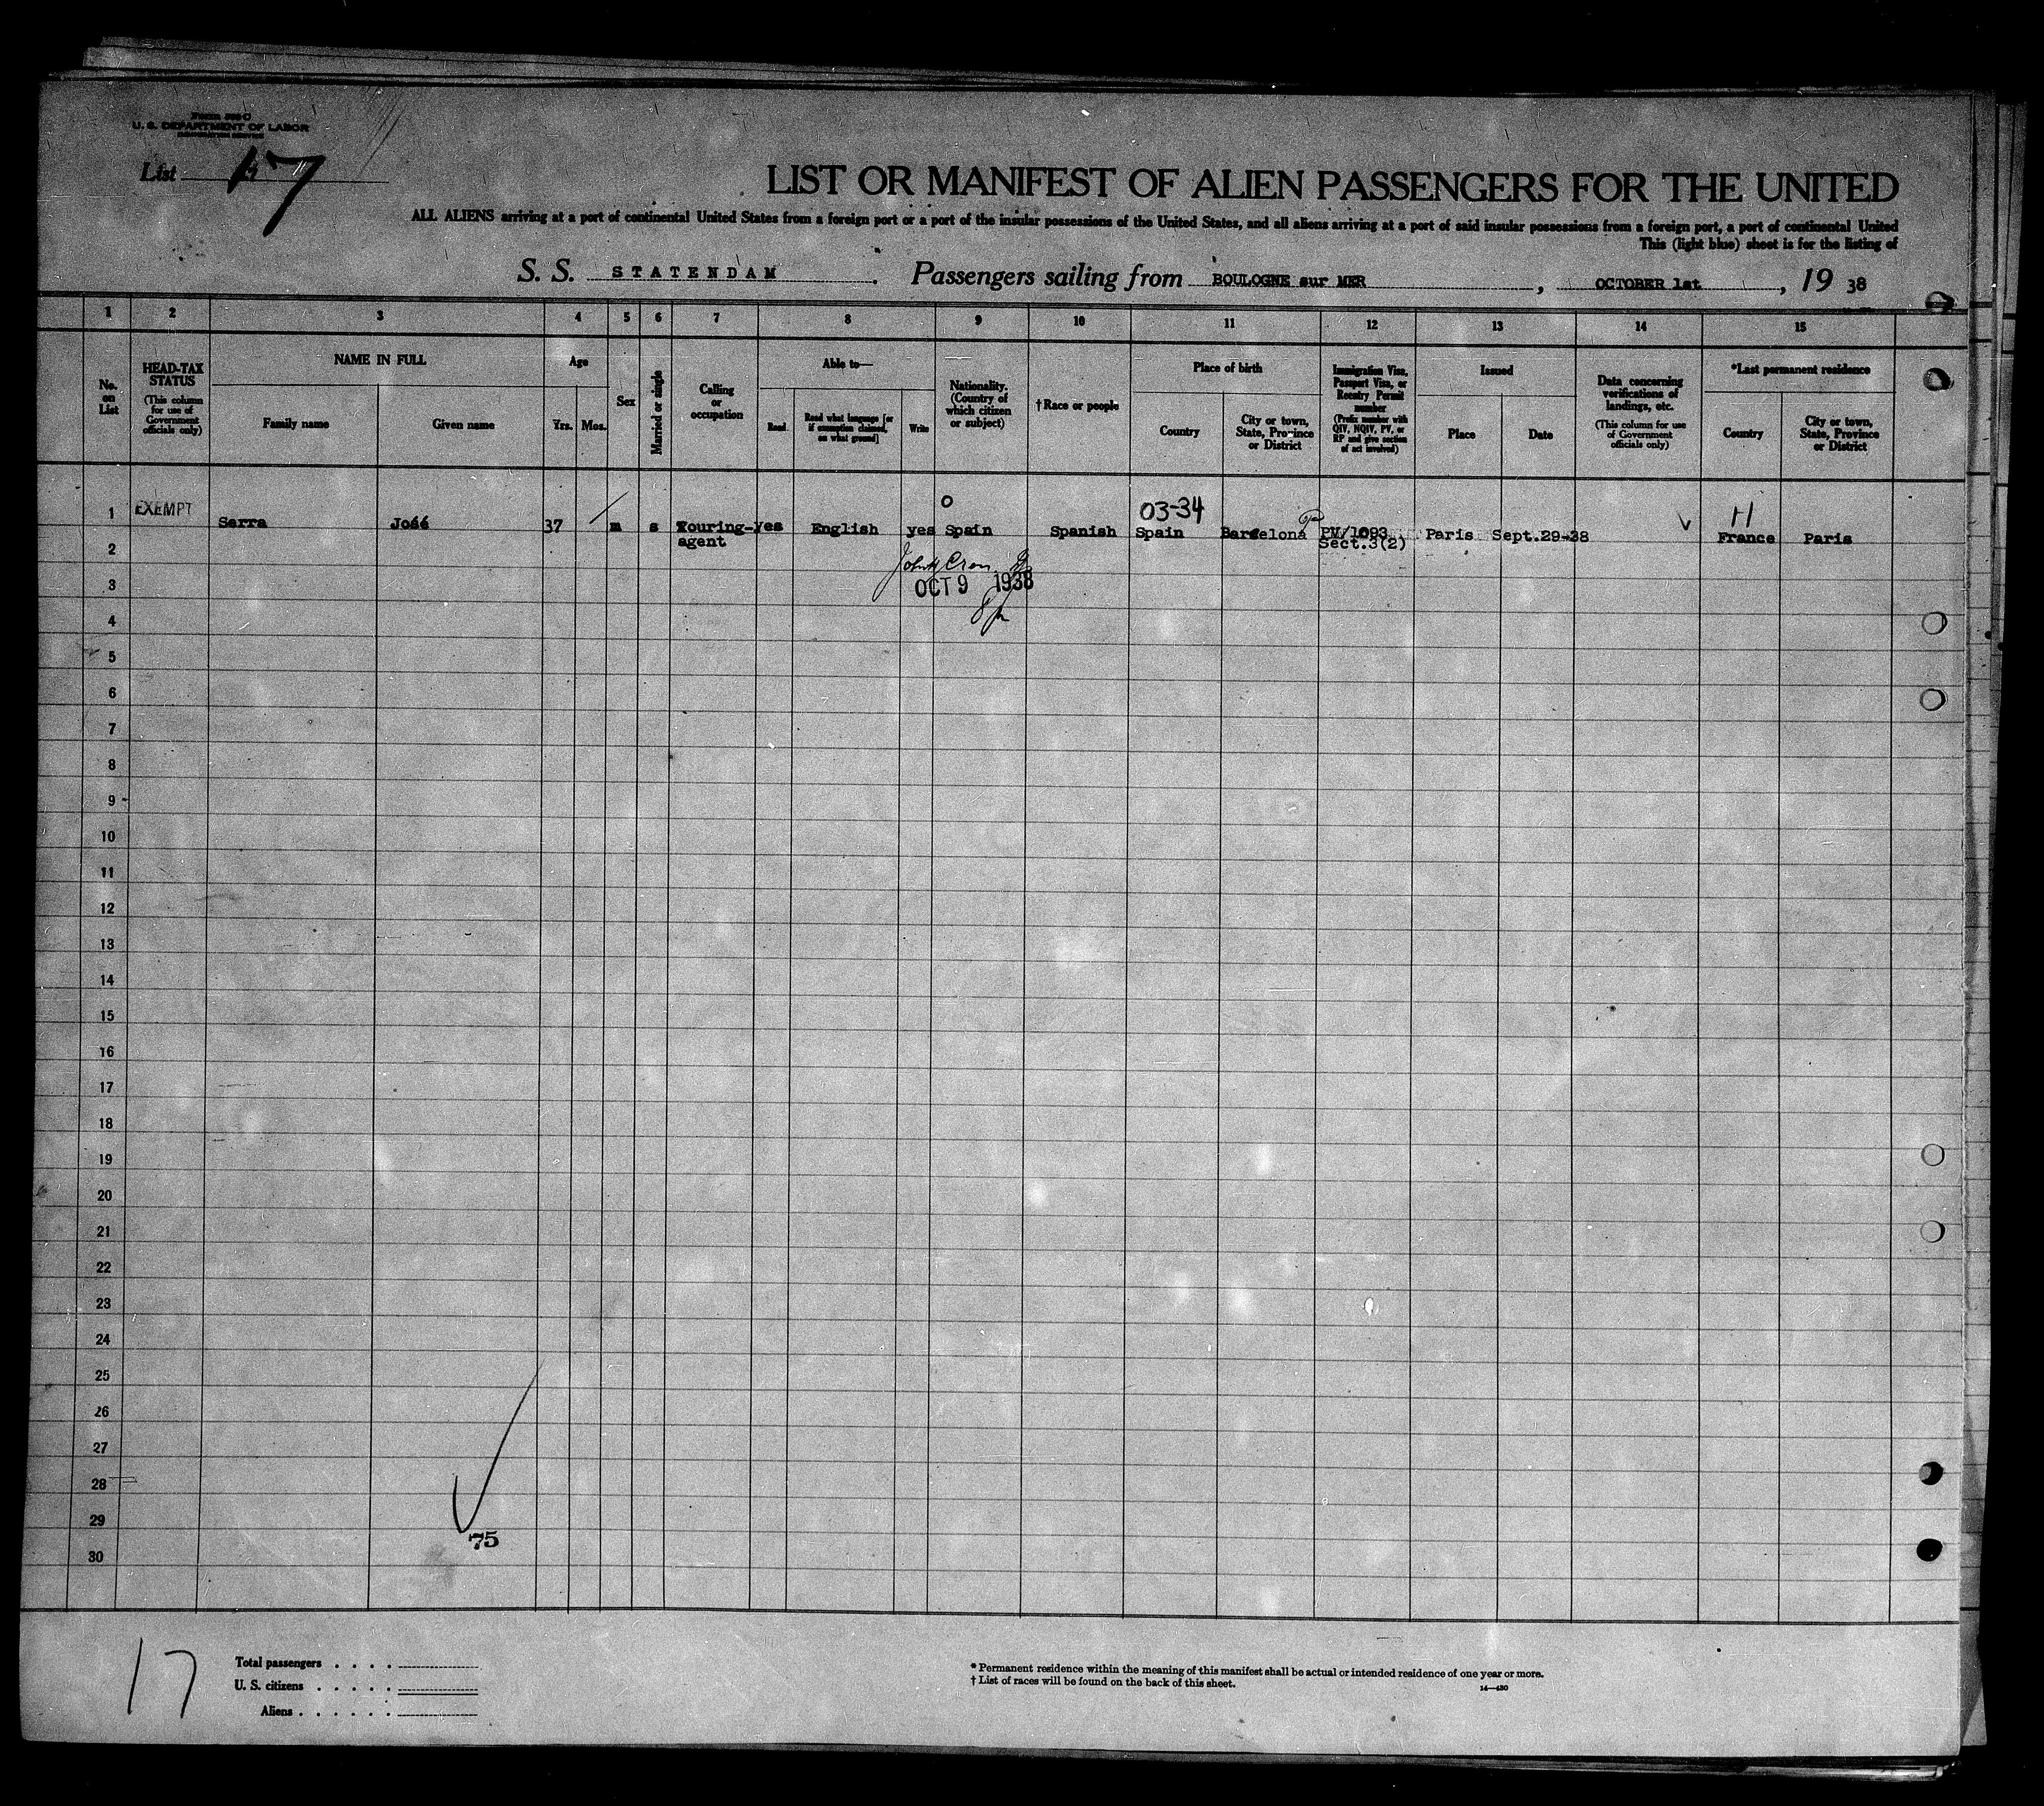 Form 500 C
U. S. DEPARTMENT OF LABOR
List 17
LIST OR MANIFEST OF ALIEN PASSENGERS FOR THE UNITED
ALL ALIENS arriving at a port of continental United States from a foreign port or a port of the insular possessions of the United States, and all aliens arriving at a port of said insular possessions from a foreign port, a port of continental United
This (light blue) sheet is for the listing of
S. S. STATENDAM. Passengers sailing from BOULOGNE sur MER, OCTOBER 1st, 19 38
1 2 3 4 5 6 7 8 9 10 11 12 13 14 15
No. on List
HEAD-TAX STATUS
(This column for use of Government officials only)
NAME IN FULL
Family name
Given name
Age
Yrs.
Mos.
Sex
Married or single
Calling or occupation
Able to—
Read
Read what language [or if exemption claimed, on what ground]
Write
Nationality. (Country of which citizen or subject)
†Race or people
Place of birth
Country
City or town, State, Province or District
Immigration Visa, Passport Visa, or Reentry Permit number
(Prefix number with QIV, NQIV, PV, or RP and give section of act involved)
Issued
Place
Date
Data concerning verifications of landings, etc.
(This column for use of Government officials only)
*Last permanent residence
Country
City or town, State, Province or District
O 03-34 H
1 EXEMPT Serra José 37 m s Touring- yes English yes Spain Spanish Spain Barcelona PV/1093 Paris Sept.29-38 France Paris
agent Sect.3(2)
2
OCT 9 1938
3
4
5
6
7
8
9
10
11
12
13
14
15
16
17
18
19
20
21
22
23
24
25
26
27
28
29
75
30
17
Total passengers
U. S. citizens
Aliens
* Permanent residence within the meaning of this manifest shall be actual or intended residence of one year or more.
† List of races will be found on the back of this sheet.
14—430